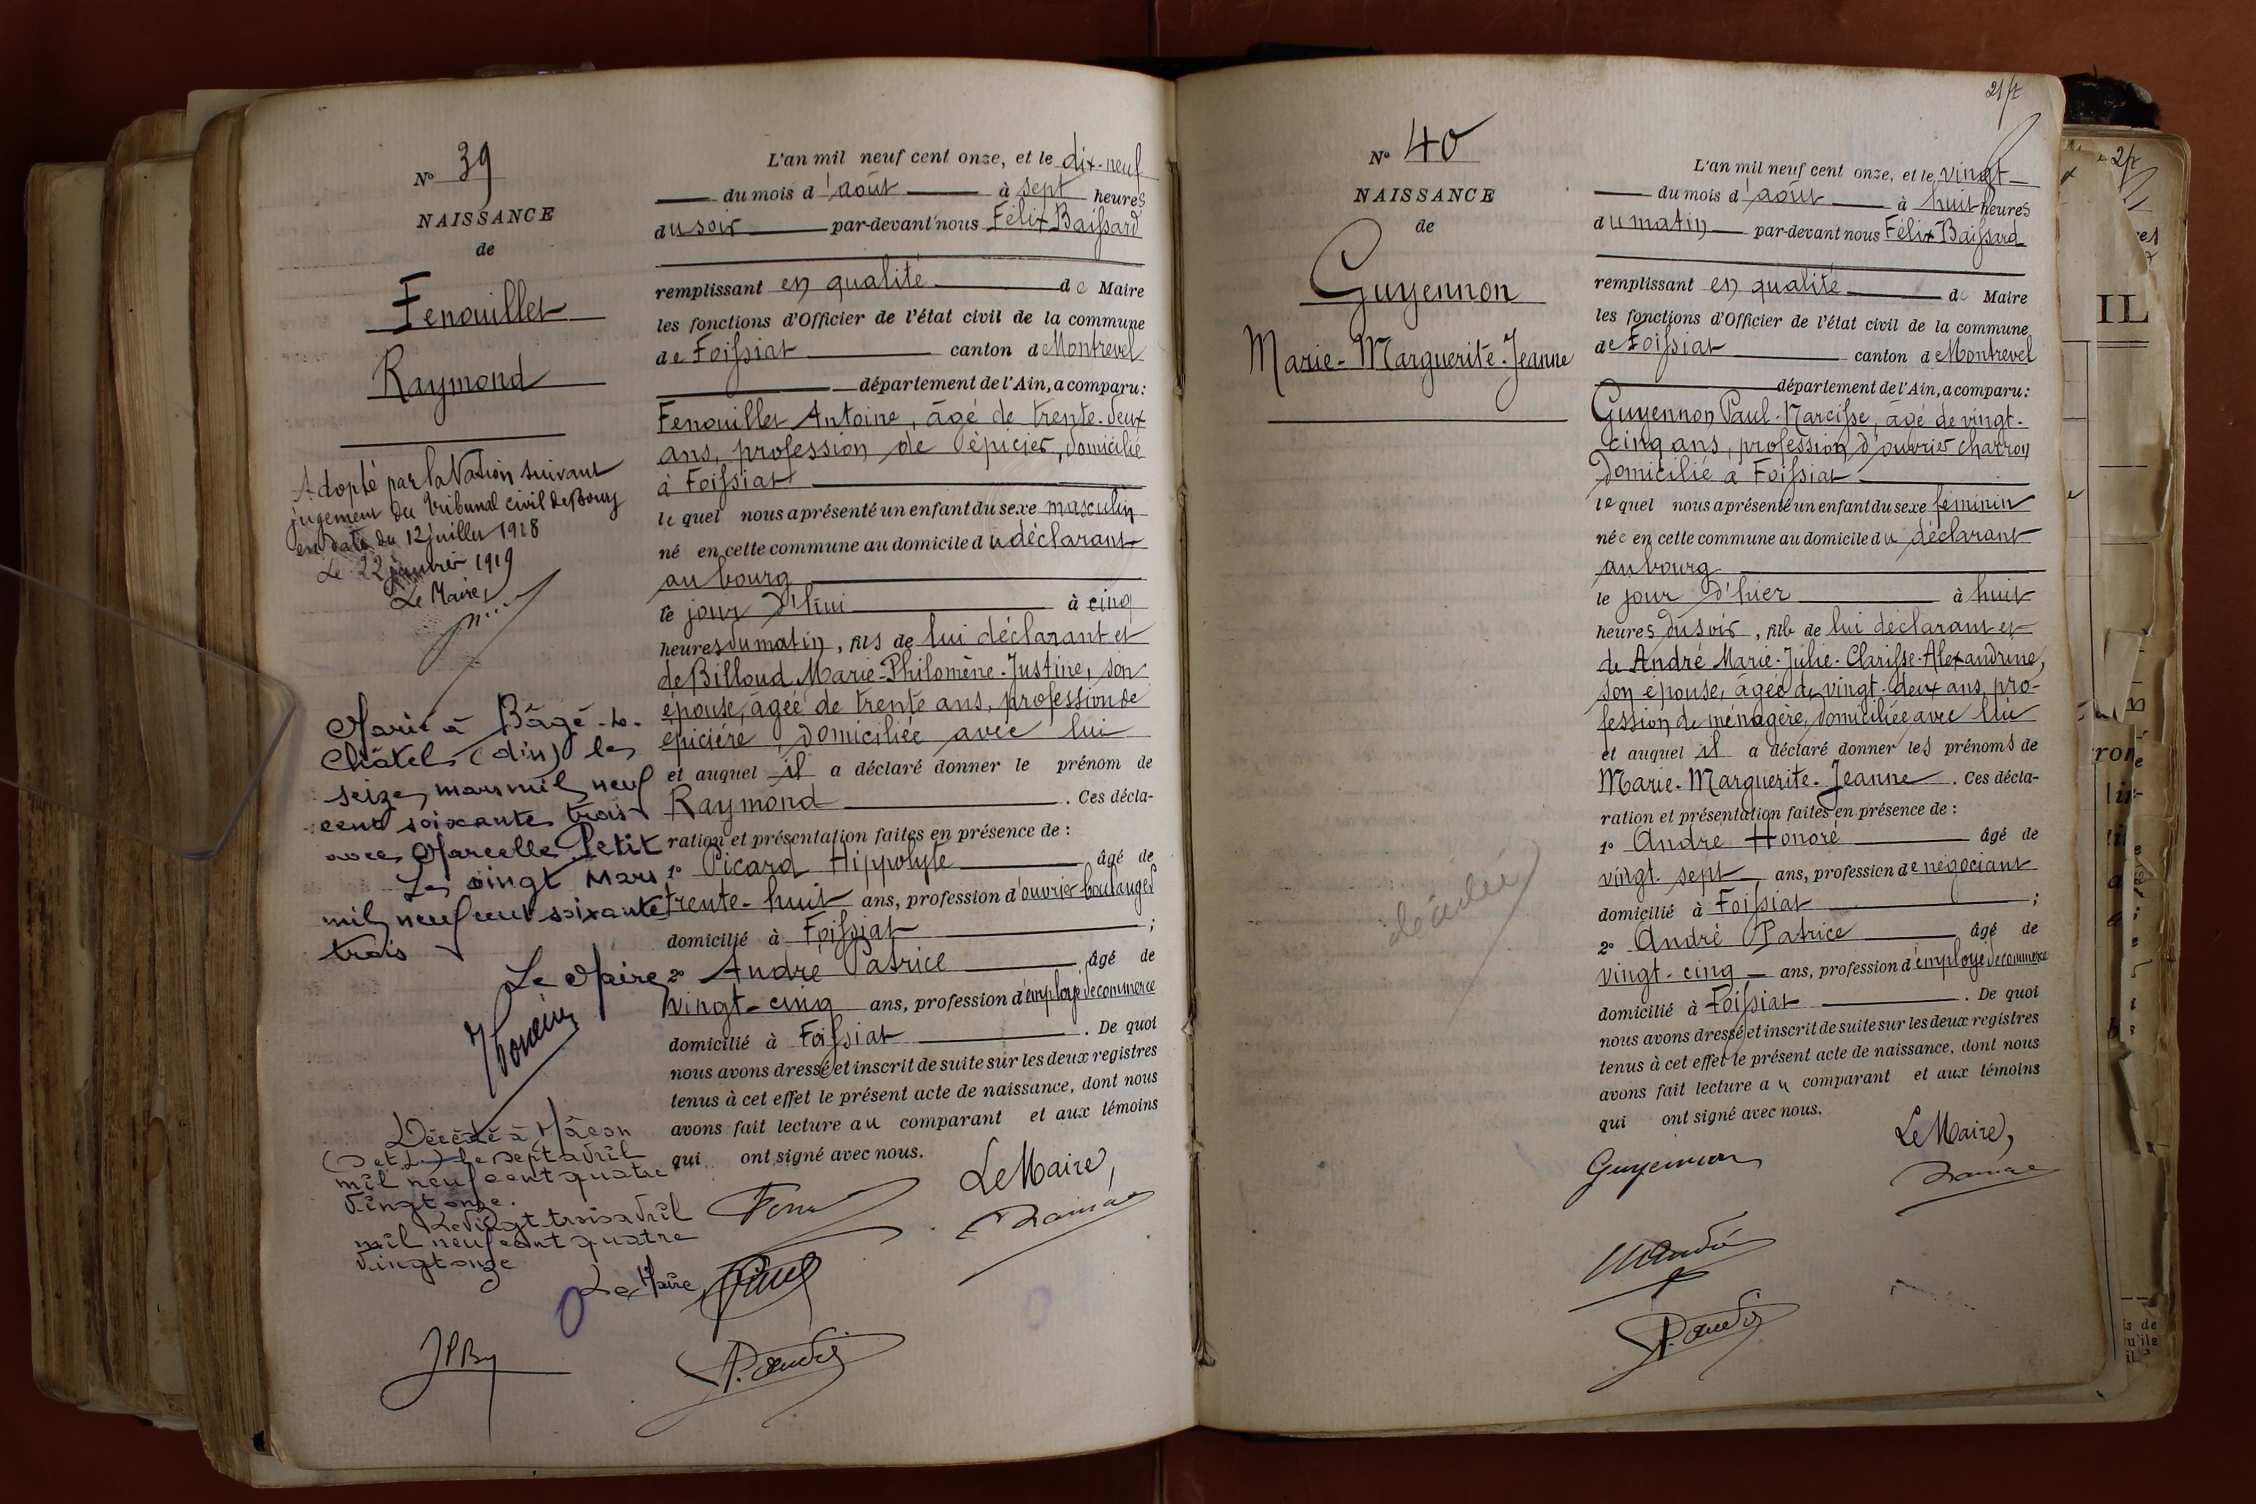 N° 39
NAISSANCE
de
Fenouillet
Raymond
Adopté par la Nation suivant
jugement du Tribunal civil de Bourg
en date du 12 juillet 1918
Le 22 janvier 1919
Le Maire,
Marié à Bâgé-le-
Châtel (Ain) le
seize mars mil neuf
cent soixante trois
avec Marcelle Petit
Le vingt Mars
mil neuf cent soixante
trois
Le Maire
Décédé à Mâcon
(S et L) le sept avril
mil neuf cent quatre
vingt onze.
Le vingt trois avril
mil neuf cent quatre
vingt onze
Le Maire,
L'an mil neuf cent onze, et le dix-neuf
du mois d'août à sept heures
du soir par-devant nous Félix Baissard
remplissant en qualité de Maire
les fonctions d'Officier de l'état civil de la commune
de Foissiat canton de Montrevel
département de l'Ain, a comparu:
Fenouillet Antoine, âgé de trente-deux
ans, profession de épicier, domicilié
à Foissiat
le quel nous a présenté un enfant du sexe masculin
né en cette commune au domicile du déclarant
au bourg
le jour d'hui à cinq
heures du matin, fils de lui déclarant et
de Billoud Marie-Philomène-Justine, son
épouse, âgée de trente ans, profession de
épicière, domiciliée avec lui
et auquel il a déclaré donner le prénom de
Raymond. Ces décla-
ration et présentation faites en présence de:
1° Picard Hippolyte âgé de
trente-huit ans, profession d'ouvrier boulanger
domicilié à Foissiat;
2° André Patrice âgé de
vingt-cinq ans, profession d'employé de commerce
domicilié à Foissiat. De quoi
nous avons dressé et inscrit de suite sur les deux registres
tenus à cet effet le présent acte de naissance, dont nous
avons fait lecture au comparant et aux témoins
qui ont signé avec nous.
Le Maire,
P. André
21/t
N° 40
NAISSANCE
de
Guyennon
Marie-Marguerite-Jeanne
L'an mil neuf cent onze, et le vingt
du mois d'août à huit heures
du matin par-devant nous Félix Baissard
remplissant en qualité de Maire
les fonctions d'Officier de l'état civil de la commune
de Foissiat canton de Montrevel
département de l'Ain, a comparu:
Guyennon Paul-Narcisse, âgé de vingt-
cinq ans, profession d'ouvrier charron
domicilié à Foissiat
le quel nous a présenté un enfant du sexe féminin
née en cette commune au domicile du déclarant
au bourg
le jour d'hier à huit
heures du soir, fille de lui déclarant et
de André Marie-Julie-Clarisse-Alexandrine,
son épouse, âgée de vingt-deux ans, pro-
fession de ménagère, domiciliée avec lui
et auquel il a déclaré donner les prénoms de
Marie-Marguerite-Jeanne. Ces décla-
ration et présentation faites en présence de:
1° André Honoré âgé de
vingt-sept ans, profession de négociant
domicilié à Foissiat;
2° André Patrice âgé de
vingt-cinq ans, profession d'employé de commerce
domicilié à Foissiat. De quoi
nous avons dressé et inscrit de suite sur les deux registres
tenus à cet effet le présent acte de naissance, dont nous
avons fait lecture au comparant et aux témoins
qui ont signé avec nous.
Le Maire,
Guyennon
H André
P. André
IL